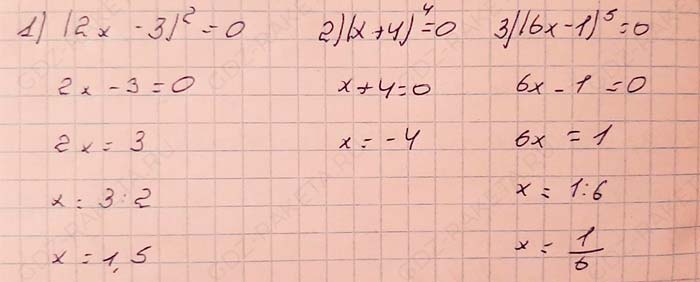 1) (2x - 3)² = 0
2x - 3 = 0
2x = 3
x = 3:2
x = 1,5
2) (x + 4)⁴ = 0
x + 4 = 0
x = -4
3) (6x - 1)⁵ = 0
6x - 1 = 0
6x = 1
x = 1:6
x = 1/6
GDZ-RAKETA.RU